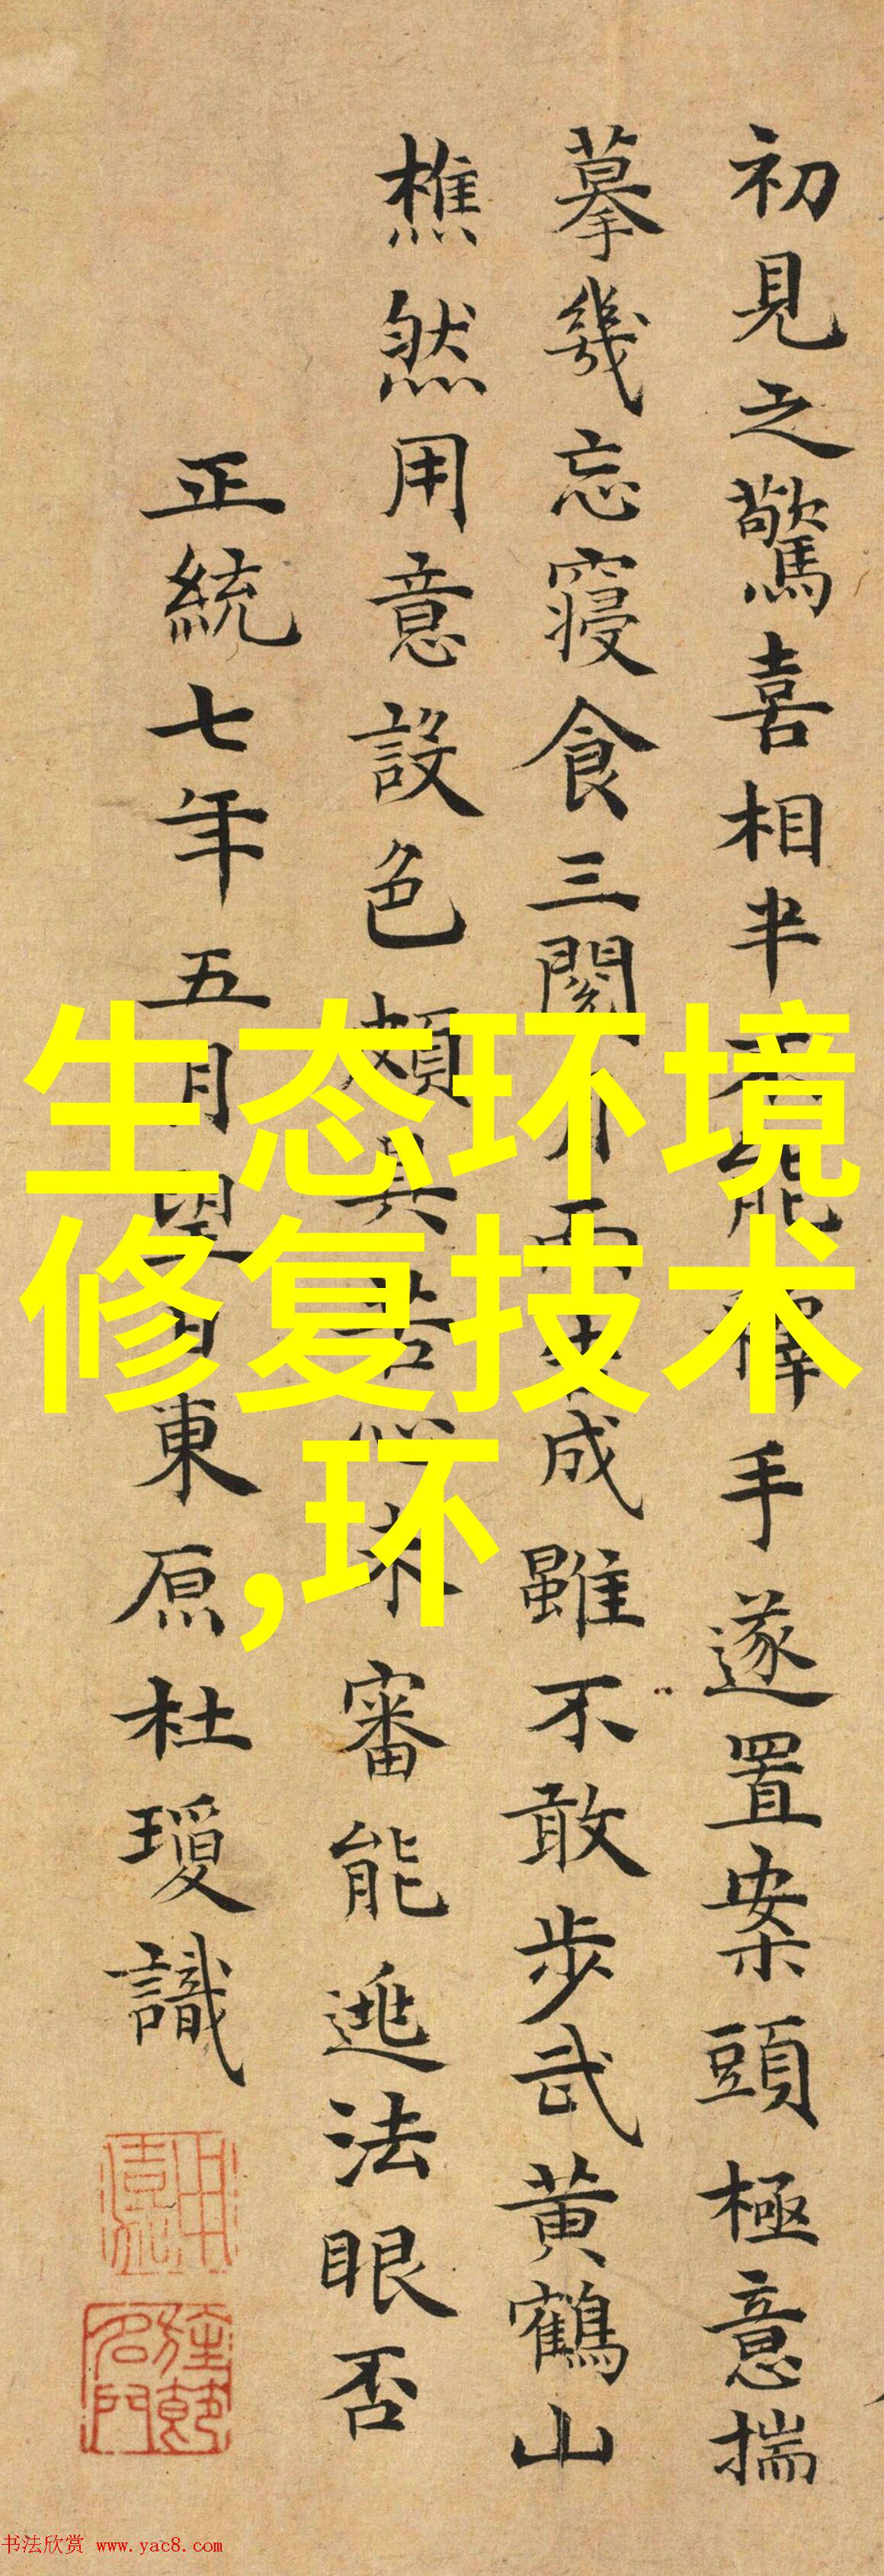 初見之驚喜相半不能釋手遂置案頭極意揣
摹幾忘寢食三閱月而成雖不敢步武黃鶴山
樵然用意設色頗具苦心未審能逃法眼否
正統七年五月望日東原杜瓊識
生态环境
修复技术
,环
书法欣赏 www.yac8.com